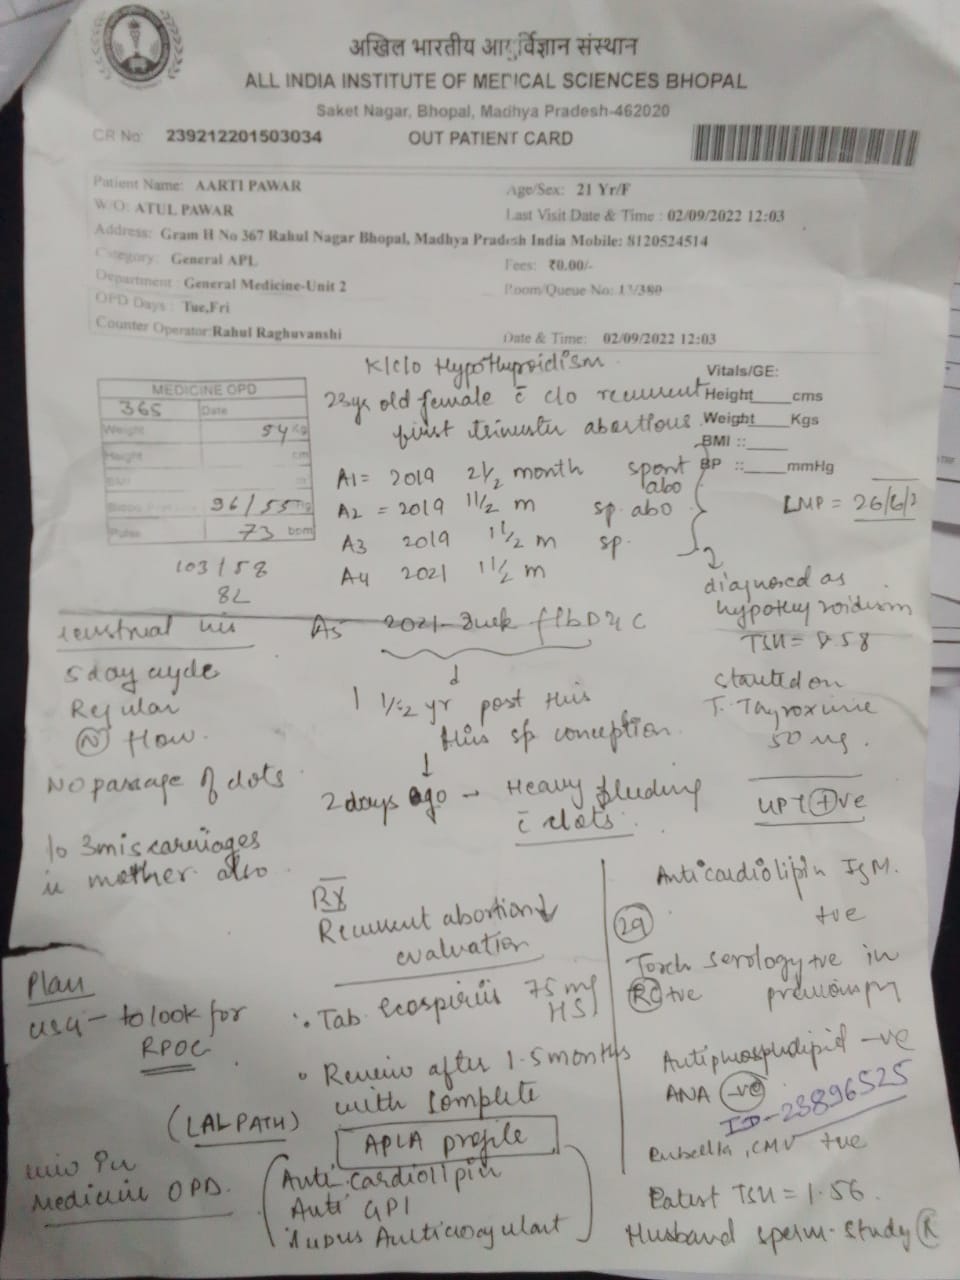 अखिल भारतीय आयुर्विज्ञान संस्थान
ALL INDIA INSTITUTE OF MEDICAL SCIENCES BHOPAL
Saket Nagar, Bhopal, Madhya Pradesh-462020
CR No: 239212201503034 OUT PATIENT CARD
Patient Name: AARTI PAWAR Age/Sex: 21 Yr/F
W/O: ATUL PAWAR Last Visit Date & Time : 02/09/2022 12:03
Address: Gram H No 367 Rahul Nagar Bhopal, Madhya Pradesh India Mobile: 8120524514
Category: General APL Fees: ₹0.00/-
Department : General Medicine-Unit 2 Room/Queue No: 13/380
OPD Days : Tue,Fri
Counter Operator:Rahul Raghuvanshi Date & Time: 02/09/2022 12:03
K/c/o Hypothyroidism.
Vitals/GE:
Height____cms
Weight____Kgs
BMI ::____
BP ::____mmHg
MEDICINE OPD
365 Date
Weight 54 Kg
Height cm
BMI
96/55
Pulse 73 bpm
103/58
82
23yr old female c̄ c/o recurrent
first trimester abortions
A1 = 2019 2 1/2 month spont abo
A2 = 2019 1 1/2 m sp. abo
A3 2019 1 1/2 m sp.
A4 2021 1 1/2 m
LMP = 26/6/2
diagnosed as
hypothyroidism
TSH = 8.58
started on
T. Thyroxine
50 ug.
UPT +ve
A5 2021 f/b D & C
1 1/2 yr post this
this sp conception
2 days ago → Heavy bleeding
c̄ clots.
5 day cycle
Regular
(N) flow.
No passage of clots
3 miscarriages
in mother also
Rx
Recurrent abortion
evaluation
• Tab. Ecospirin 75 mg
HS
• Review after 1.5 months
with complete
APLA profile
Anti cardiolipin
Anti GPI
Lupus Anticoagulant
Plan
USG - to look for
RPOC
(LAL PATH)
Medicine OPD.
Anticardiolipin IgM.
+ve
29
Torch serology +ve in
+ve previous
Antiphospholipid -ve
ANA -ve
ID-23896525
Rubella, CMV +ve
Latest TSH = 1.56.
Husband sperm study